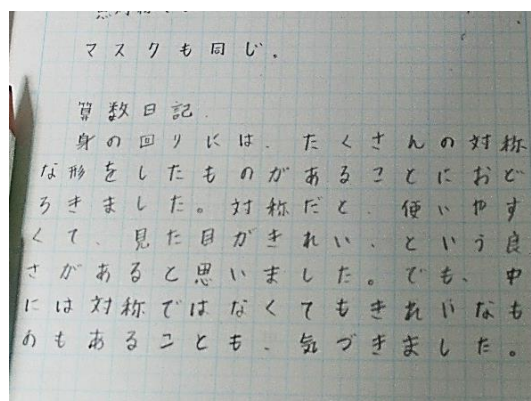 マスクも同じ.
算数日記.
身の回りには、たくさんの対称
な形をしたものがあることにおど
ろきました。対称だと、使いやす
くて、見た目がきれい、という良
さがあると思いました。でも、中
には対称ではなくてもきれいなも
のもあることも、気づきました。